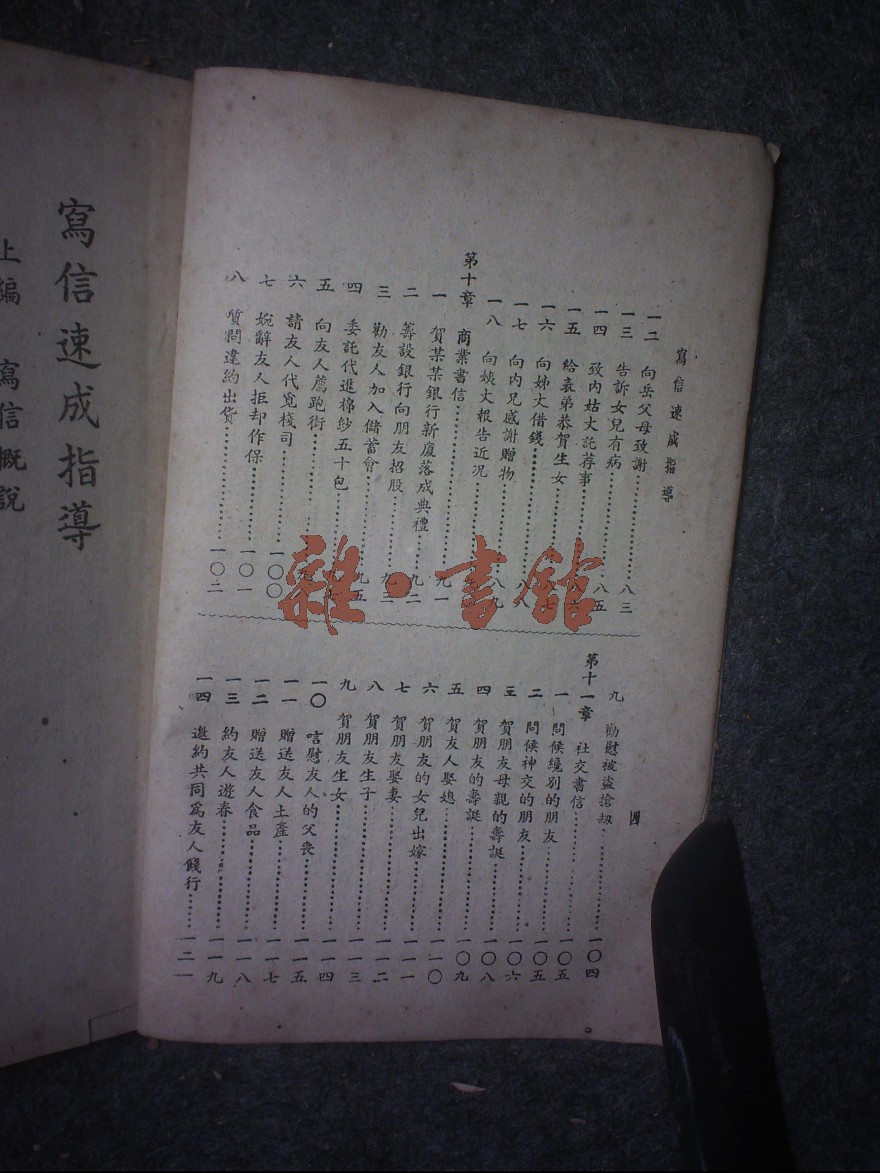 寫信速成指導
一二 向岳父母致謝……八三
一三 告訴女兒有病……八五
一四 致內姑丈託荐事……
一五 給表弟恭賀生女……
一六 向姊丈借錢……八八
一七 向內兄感謝贈物……八九
一八 向姨丈報告近況……
第十章 商業書信……九一
一 賀某某銀行新廈落成典禮……九二
二 籌設銀行向朋友招股……九三
三 勸友人加入儲蓄會……九五
四 委託代進棉紗五十包……
五 向友人薦跑街……
六 請友人代覓棧司……一〇〇
七 婉辭友人拒却作保……一〇一
八 質問違約出貨……一〇二
九 勸慰被盜搶刼……一〇四
第十一章 社交書信……一〇五
一 問候纔別的朋友……一〇五
二 問候神交的朋友……一〇六
三 賀朋友母親的壽誕……一〇八
四 賀朋友的壽誕……一〇九
五 賀友人娶媳……一一〇
六 賀朋友的女兒出嫁……一一一
七 賀朋友娶妻……一一二
八 賀朋友生子……一一三
九 賀朋友生女……一一四
一〇 唁慰友人的父喪……一一五
一一 贈送友人土產……一一七
一二 贈送友人食品……一一八
一三 約友人遊春……一一九
一四 邀約共同爲友人餞行……一二一
四
雜·書館
寫信速成指導
上編 寫信概說